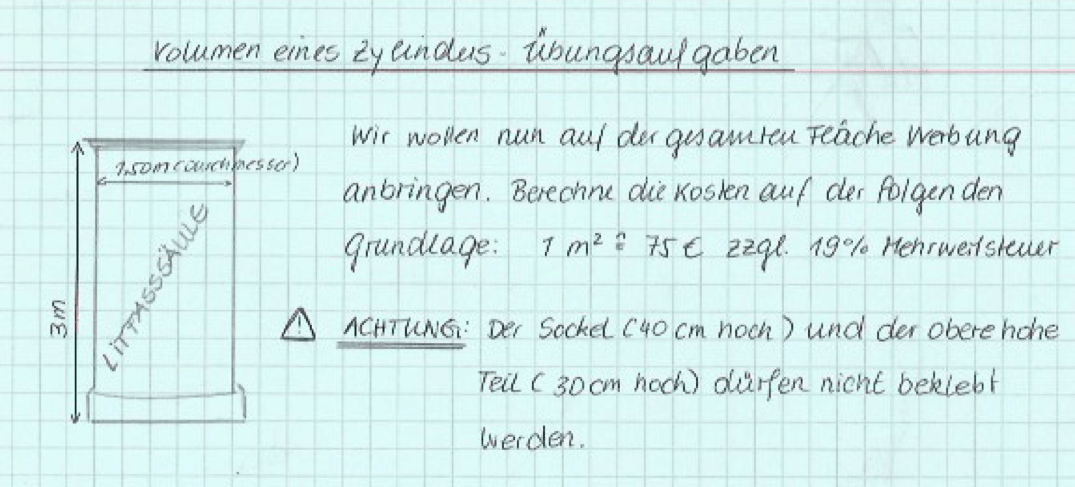 Volumen eines Zylinders - Übungsaufgaben
Wir wollen nun auf der gesamten Fläche Werbung
1,50m (Durchmesser)
anbringen. Berechne die Kosten auf der folgenden
Grundlage: 1 m² ≙ 75 € zzgl. 19% Mehrwertsteuer
LITTASSSÄULE
3m
⚠ ACHTUNG: Der Sockel (40 cm hoch) und der obere hohe
Teil (30 cm hoch) dürfen nicht beklebt
werden.